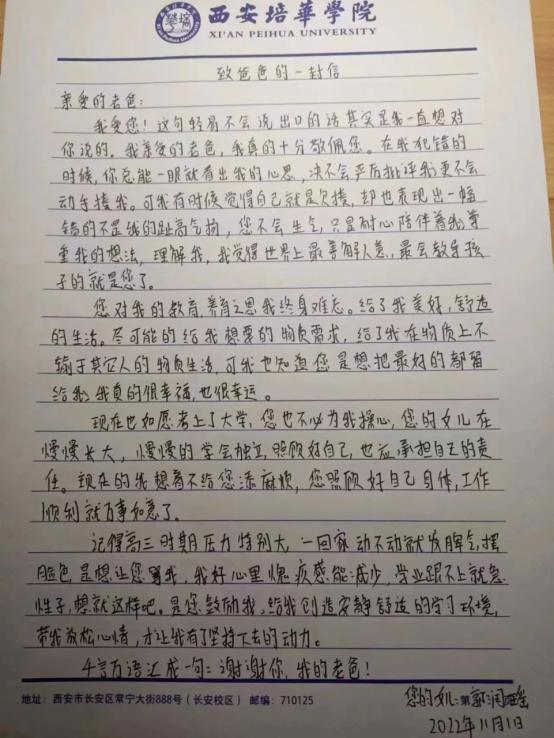 西安培華學院
XI'AN PEIHUA UNIVERSITY
致爸爸的一封信
亲爱的老爸：
我爱您！这句轻易不会说出口的话其实是我一直想对
你说的。我亲爱的老爸，我真的十分敬佩您。在我犯错的
时候，你总能一眼就看出我的心思，决不会严厉批评我，更不会
动手揍我。可我有时候觉得自己就是欠揍，却也表现出一幅
错的不是我的趾高气扬，您不会生气，只是耐心陪伴着我，尊
重我的想法，理解我，我觉得世界上最善解人意、最会教导孩
子的就是您了。
您对我的教育、养育之恩我终身难忘。给了我美好、舒适
的生活。尽可能的给我想要的物质需求，给了我在物质上不
输于其它人的物质生活，可我也知道您是想把最好的都留
给我，我真的很幸福，也很幸运。
现在也如愿考上了大学，您也不必为我操心，您的女儿在
慢慢长大，慢慢的学会独立，照顾好自己，也应承担自己的责
任。现在的我想着不给您添麻烦，您照顾好自己身体，工作
顺利就万事如意了。
记得高三时期压力特别大，一回家动不动就发脾气，摆
脸色是想让您骂我，我好心里愧疚感能减少，学业跟不上就急
性子，想就这样吧。是您鼓励我，给我创造安静舒适的学习环境，
带我放松心情，才让我有了坚持下去的动力。
千言万语汇成一句：谢谢你，我的老爸！
地址：西安市长安区常宁大街888号（长安校区） 邮编：710125 第 页
您的女儿：郭润
2022年11月1日